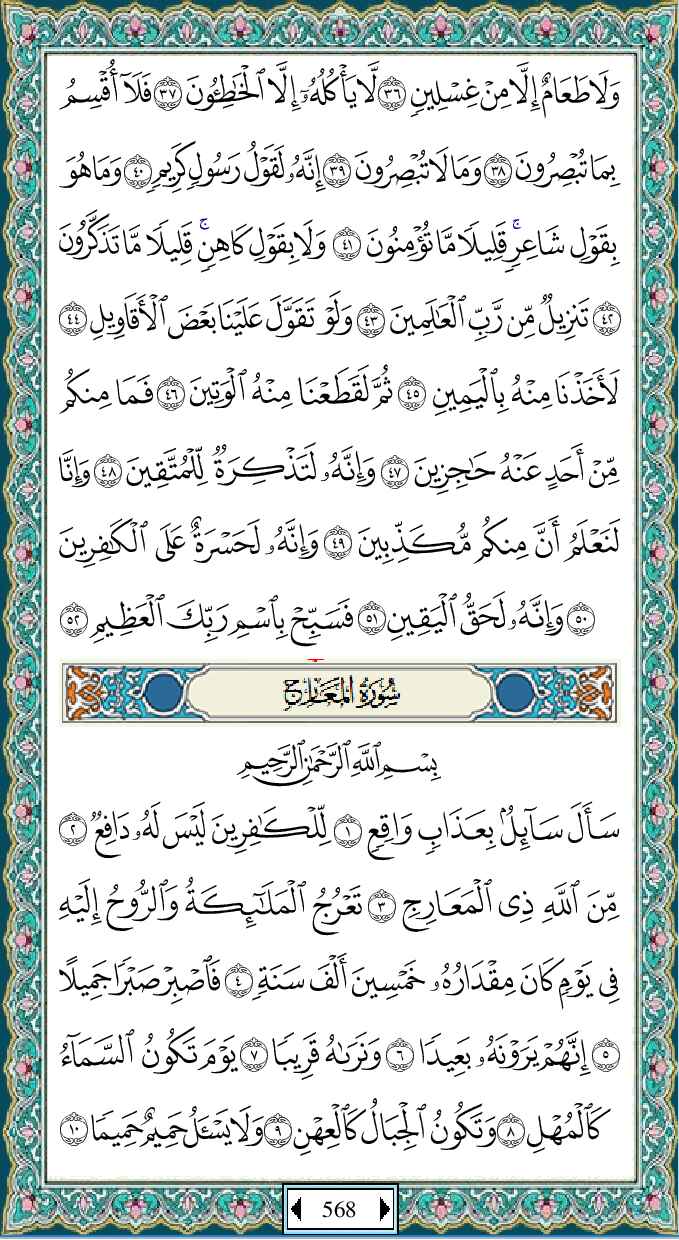 وَلَا طَعَامٌ إِلَّا مِنْ غِسْلِينٍ ٣٦ لَّا يَأْكُلُهُۥٓ إِلَّا ٱلْخَٰطِـُٔونَ ٣٧ فَلَآ أُقْسِمُ
بِمَا تُبْصِرُونَ ٣٨ وَمَا لَا تُبْصِرُونَ ٣٩ إِنَّهُۥ لَقَوْلُ رَسُولٍ كَرِيمٍ ٤٠ وَمَا هُوَ
بِقَوْلِ شَاعِرٍۚ قَلِيلًا مَّا تُؤْمِنُونَ ٤١ وَلَا بِقَوْلِ كَاهِنٍۚ قَلِيلًا مَّا تَذَكَّرُونَ
٤٢ تَنزِيلٌ مِّن رَّبِّ ٱلْعَٰلَمِينَ ٤٣ وَلَوْ تَقَوَّلَ عَلَيْنَا بَعْضَ ٱلْأَقَاوِيلِ ٤٤
لَأَخَذْنَا مِنْهُ بِٱلْيَمِينِ ٤٥ ثُمَّ لَقَطَعْنَا مِنْهُ ٱلْوَتِينَ ٤٦ فَمَا مِنكُم
مِّنْ أَحَدٍ عَنْهُ حَٰجِزِينَ ٤٧ وَإِنَّهُۥ لَتَذْكِرَةٌ لِّلْمُتَّقِينَ ٤٨ وَإِنَّا
لَنَعْلَمُ أَنَّ مِنكُم مُّكَذِّبِينَ ٤٩ وَإِنَّهُۥ لَحَسْرَةٌ عَلَى ٱلْكَٰفِرِينَ
٥٠ وَإِنَّهُۥ لَحَقُّ ٱلْيَقِينِ ٥١ فَسَبِّحْ بِٱسْمِ رَبِّكَ ٱلْعَظِيمِ ٥٢
سُورَةُ المَعَارِجِ
بِسْمِ ٱللَّهِ ٱلرَّحْمَٰنِ ٱلرَّحِيمِ
سَأَلَ سَآئِلٌۢ بِعَذَابٍ وَاقِعٍ ١ لِّلْكَٰفِرِينَ لَيْسَ لَهُۥ دَافِعٌ ٢
مِّنَ ٱللَّهِ ذِى ٱلْمَعَارِجِ ٣ تَعْرُجُ ٱلْمَلَٰٓئِكَةُ وَٱلرُّوحُ إِلَيْهِ
فِى يَوْمٍ كَانَ مِقْدَارُهُۥ خَمْسِينَ أَلْفَ سَنَةٍ ٤ فَٱصْبِرْ صَبْرًا جَمِيلًا
٥ إِنَّهُمْ يَرَوْنَهُۥ بَعِيدًا ٦ وَنَرَىٰهُ قَرِيبًا ٧ يَوْمَ تَكُونُ ٱلسَّمَآءُ
كَٱلْمُهْلِ ٨ وَتَكُونُ ٱلْجِبَالُ كَٱلْعِهْنِ ٩ وَلَا يَسْـَٔلُ حَمِيمٌ حَمِيمًا ١٠
568